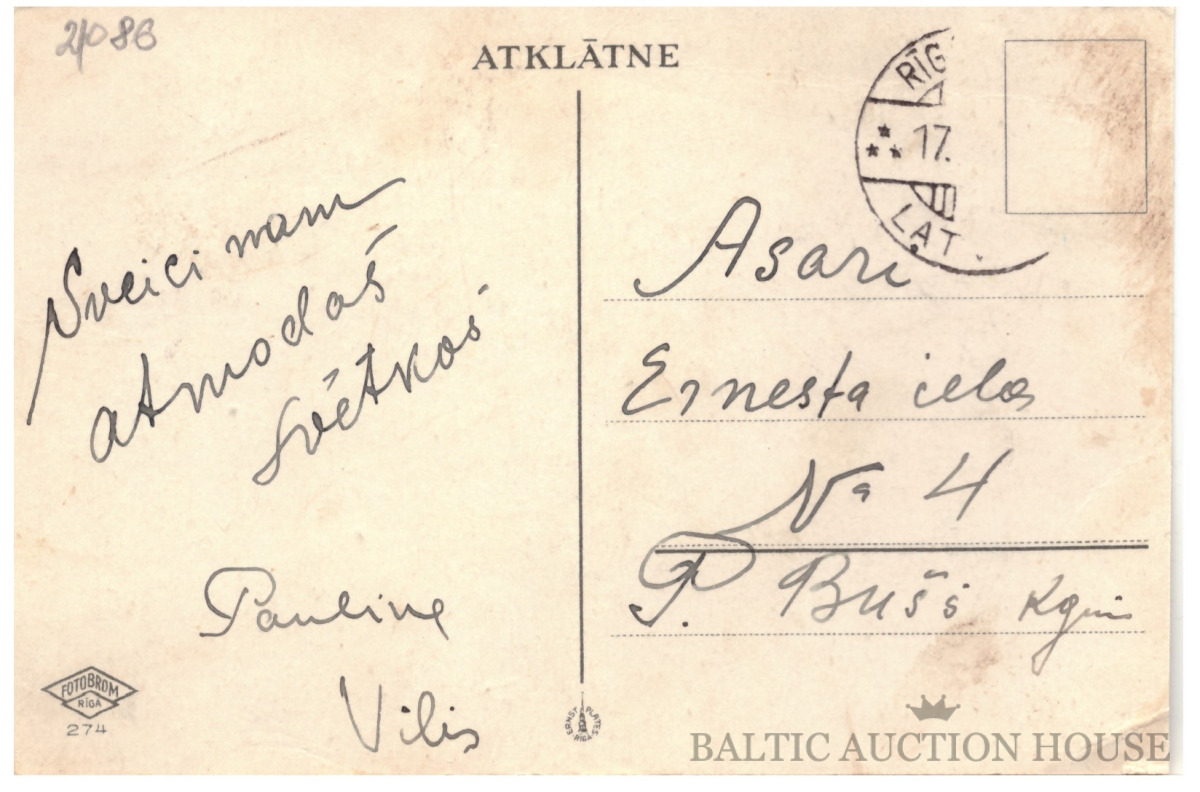 21086
ATKLĀTNE
RĪG
17.
LAT
Sveicinam
atmodas
svētkos
Pauline
Vilis
Asari
Ernesta ielas
Nº 4
P. Bušs kgm
FOTOBROM
RĪGA
274
ERNST PLATES
RĪGA
BALTIC AUCTION HOUSE